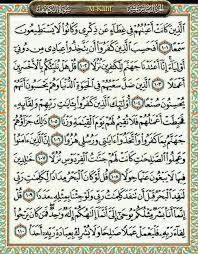 Al-Kahf
ٱلَّذِينَ كَانَتْ أَعْيُنُهُمْ فِى غِطَآءٍ عَن ذِكْرِى وَكَانُوا۟ لَا يَسْتَطِيعُونَ
سَمْعًا ١٠١ أَفَحَسِبَ ٱلَّذِينَ كَفَرُوٓا۟ أَن يَتَّخِذُوا۟ عِبَادِى مِن دُونِىٓ
أَوْلِيَآءَ إِنَّآ أَعْتَدْنَا جَهَنَّمَ لِلْكَٰفِرِينَ نُزُلًا ١٠٢ قُلْ هَلْ نُنَبِّئُكُم بِٱلْأَخْسَرِينَ
أَعْمَٰلًا ١٠٣ ٱلَّذِينَ ضَلَّ سَعْيُهُمْ فِى ٱلْحَيَوٰةِ ٱلدُّنْيَا وَهُمْ يَحْسَبُونَ أَنَّهُمْ
يُحْسِنُونَ صُنْعًا ١٠٤ أُو۟لَٰٓئِكَ ٱلَّذِينَ كَفَرُوا۟ بِـَٔايَٰتِ رَبِّهِمْ وَلِقَآئِهِۦ فَحَبِطَتْ
أَعْمَٰلُهُمْ فَلَا نُقِيمُ لَهُمْ يَوْمَ ٱلْقِيَٰمَةِ وَزْنًا ١٠٥ ذَٰلِكَ جَزَآؤُهُمْ
جَهَنَّمُ بِمَا كَفَرُوا۟ وَٱتَّخَذُوٓا۟ ءَايَٰتِى وَرُسُلِى هُزُوًا ١٠٦ إِنَّ ٱلَّذِينَ ءَامَنُوا۟
وَعَمِلُوا۟ ٱلصَّٰلِحَٰتِ كَانَتْ لَهُمْ جَنَّٰتُ ٱلْفِرْدَوْسِ نُزُلًا ١٠٧ خَٰلِدِينَ
فِيهَا لَا يَبْغُونَ عَنْهَا حِوَلًا ١٠٨ قُل لَّوْ كَانَ ٱلْبَحْرُ مِدَادًا لِّكَلِمَٰتِ رَبِّى
لَنَفِدَ ٱلْبَحْرُ قَبْلَ أَن تَنفَدَ كَلِمَٰتُ رَبِّى وَلَوْ جِئْنَا بِمِثْلِهِۦ مَدَدًا ١٠٩
قُلْ إِنَّمَآ أَنَا۠ بَشَرٌ مِّثْلُكُمْ يُوحَىٰٓ إِلَىَّ أَنَّمَآ إِلَٰهُكُمْ إِلَٰهٌ وَٰحِدٌ فَمَن كَانَ يَرْجُوا۟
لِقَآءَ رَبِّهِۦ فَلْيَعْمَلْ عَمَلًا صَٰلِحًا وَلَا يُشْرِكْ بِعِبَادَةِ رَبِّهِۦٓ أَحَدًۢا ١١٠